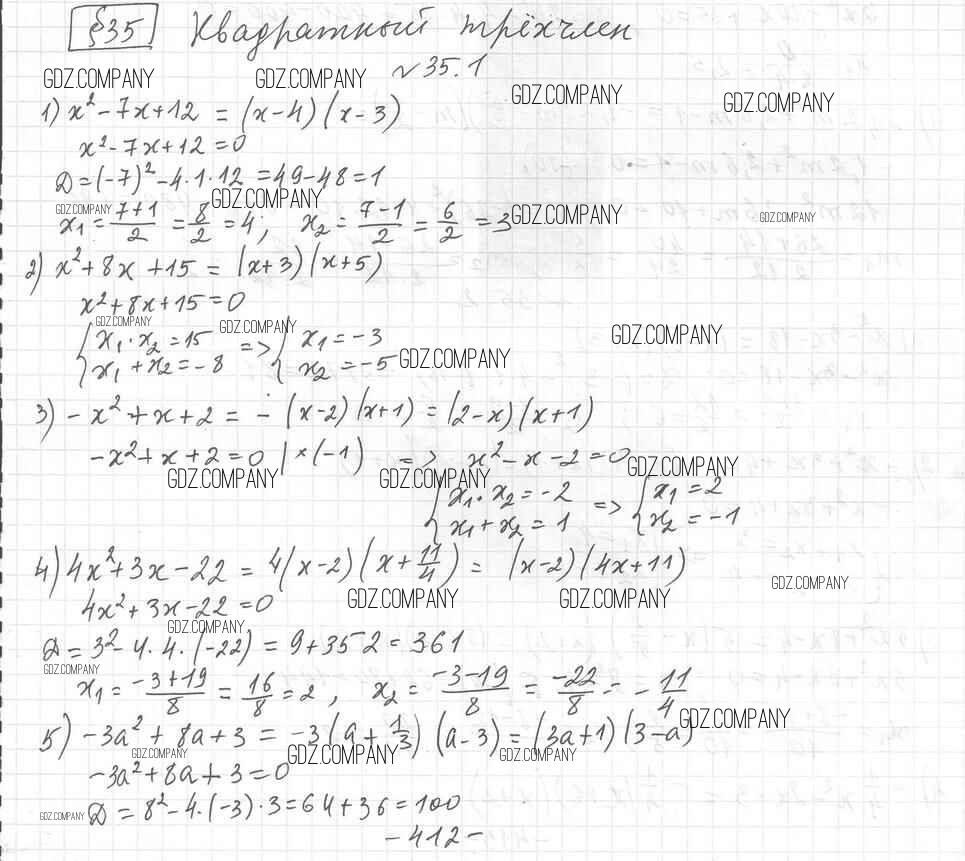 §35 Квадратный трёхчлен
№35.1
GDZ.COMPANY GDZ.COMPANY GDZ.COMPANY GDZ.COMPANY
1) x² - 7x + 12 = (x-4)(x-3)
x² - 7x + 12 = 0
Д = (-7)² - 4·1·12 = 49 - 48 = 1
GDZ.COMPANY GDZ.COMPANY GDZ.COMPANY GDZ.COMPANY
x₁ = (7+1)/2 = 8/2 = 4; x₂ = (7-1)/2 = 6/2 = 3
2) x² + 8x + 15 = (x+3)(x+5)
x² + 8x + 15 = 0
GDZ.COMPANY GDZ.COMPANY GDZ.COMPANY
{ x₁·x₂ = 15 => { x₁ = -3
x₁ + x₂ = -8 x₂ = -5
GDZ.COMPANY
3) -x² + x + 2 = -(x-2)(x+1) = (2-x)(x+1)
-x² + x + 2 = 0 |×(-1) => x² - x - 2 = 0
GDZ.COMPANY GDZ.COMPANY GDZ.COMPANY
{ x₁·x₂ = -2 => { x₁ = 2
x₁ + x₂ = 1 x₂ = -1
4) 4x² + 3x - 22 = 4(x-2)(x + 11/4) = (x-2)(4x+11)
GDZ.COMPANY GDZ.COMPANY GDZ.COMPANY
4x² + 3x - 22 = 0
GDZ.COMPANY
Д = 3² - 4·4·(-22) = 9 + 352 = 361
GDZ.COMPANY
x₁ = (-3+19)/8 = 16/8 = 2, x₂ = (-3-19)/8 = -22/8 = -11/4
GDZ.COMPANY
5) -3a² + 8a + 3 = -3(a + 1/3)(a-3) = (3a+1)(3-a)
GDZ.COMPANY GDZ.COMPANY GDZ.COMPANY
-3a² + 8a + 3 = 0
GDZ.COMPANY
Д = 8² - 4·(-3)·3 = 64 + 36 = 100
- 412 -